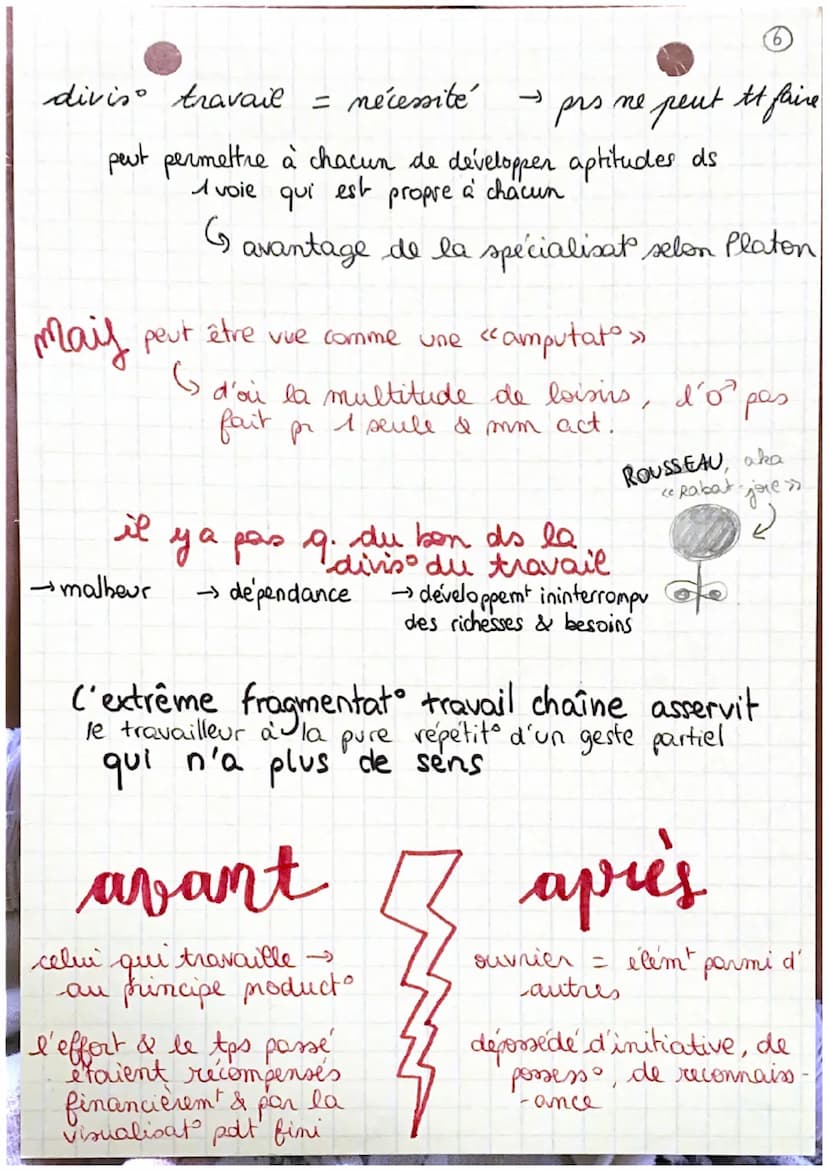 6
divis° travail = nécessité → prs ne peut tt faire
peut permettre à chacun de développer aptitudes ds
1 voie qui est propre à chacun
↳ avantage de la spécialisat° selon Platon
Mais peut être vue comme une «amputat°»
↳ d'où la multitude de loisirs, l'♂ pas
fait pr 1 seule & mm act.
ROUSSEAU, aka
«Rabat-joie»
il y a pas q. du bon ds la
divis° du travail
→ malheur → dépendance → développemt ininterrompu
des richesses & besoins
L'extrême fragmentat° travail chaîne asservit
le travailleur à la pure répétit° d'un geste partiel
qui n'a plus de sens
avant
après
celui qui travaille →
au principe product°
l'effort & le tps passé
étaient récompensés
financièremt & par la
visualisat° pdt fini
ouvrier = élémt parmi d'
autres
dépossédé d'initiative, de
possess°, de reconnaiss-
-ance